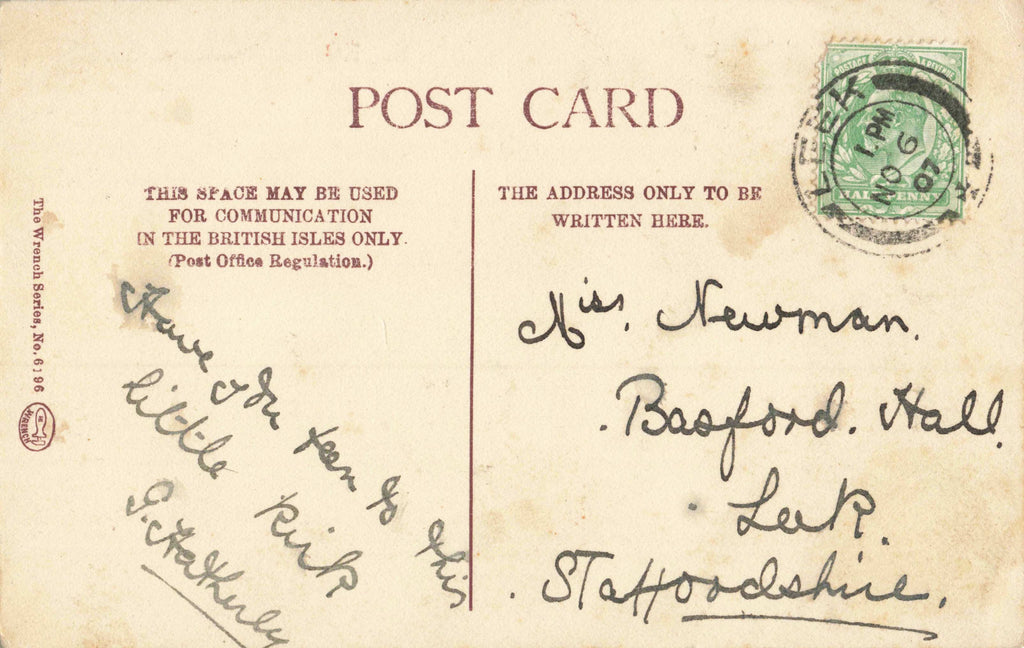 POST CARD
THIS SPACE MAY BE USED
FOR COMMUNICATION
IN THE BRITISH ISLES ONLY.
(Post Office Regulation.)
THE ADDRESS ONLY TO BE
WRITTEN HERE.
POSTAGE & REVENUE
HALFPENNY
LEEK
1. PM
NO 6
07
The Wrench Series, No. 6196
WRENCH
Have you been to this
little kirk
G. Hatherly
Miss. Newman.
Basford. Hall.
Leek.
Staffordshire.